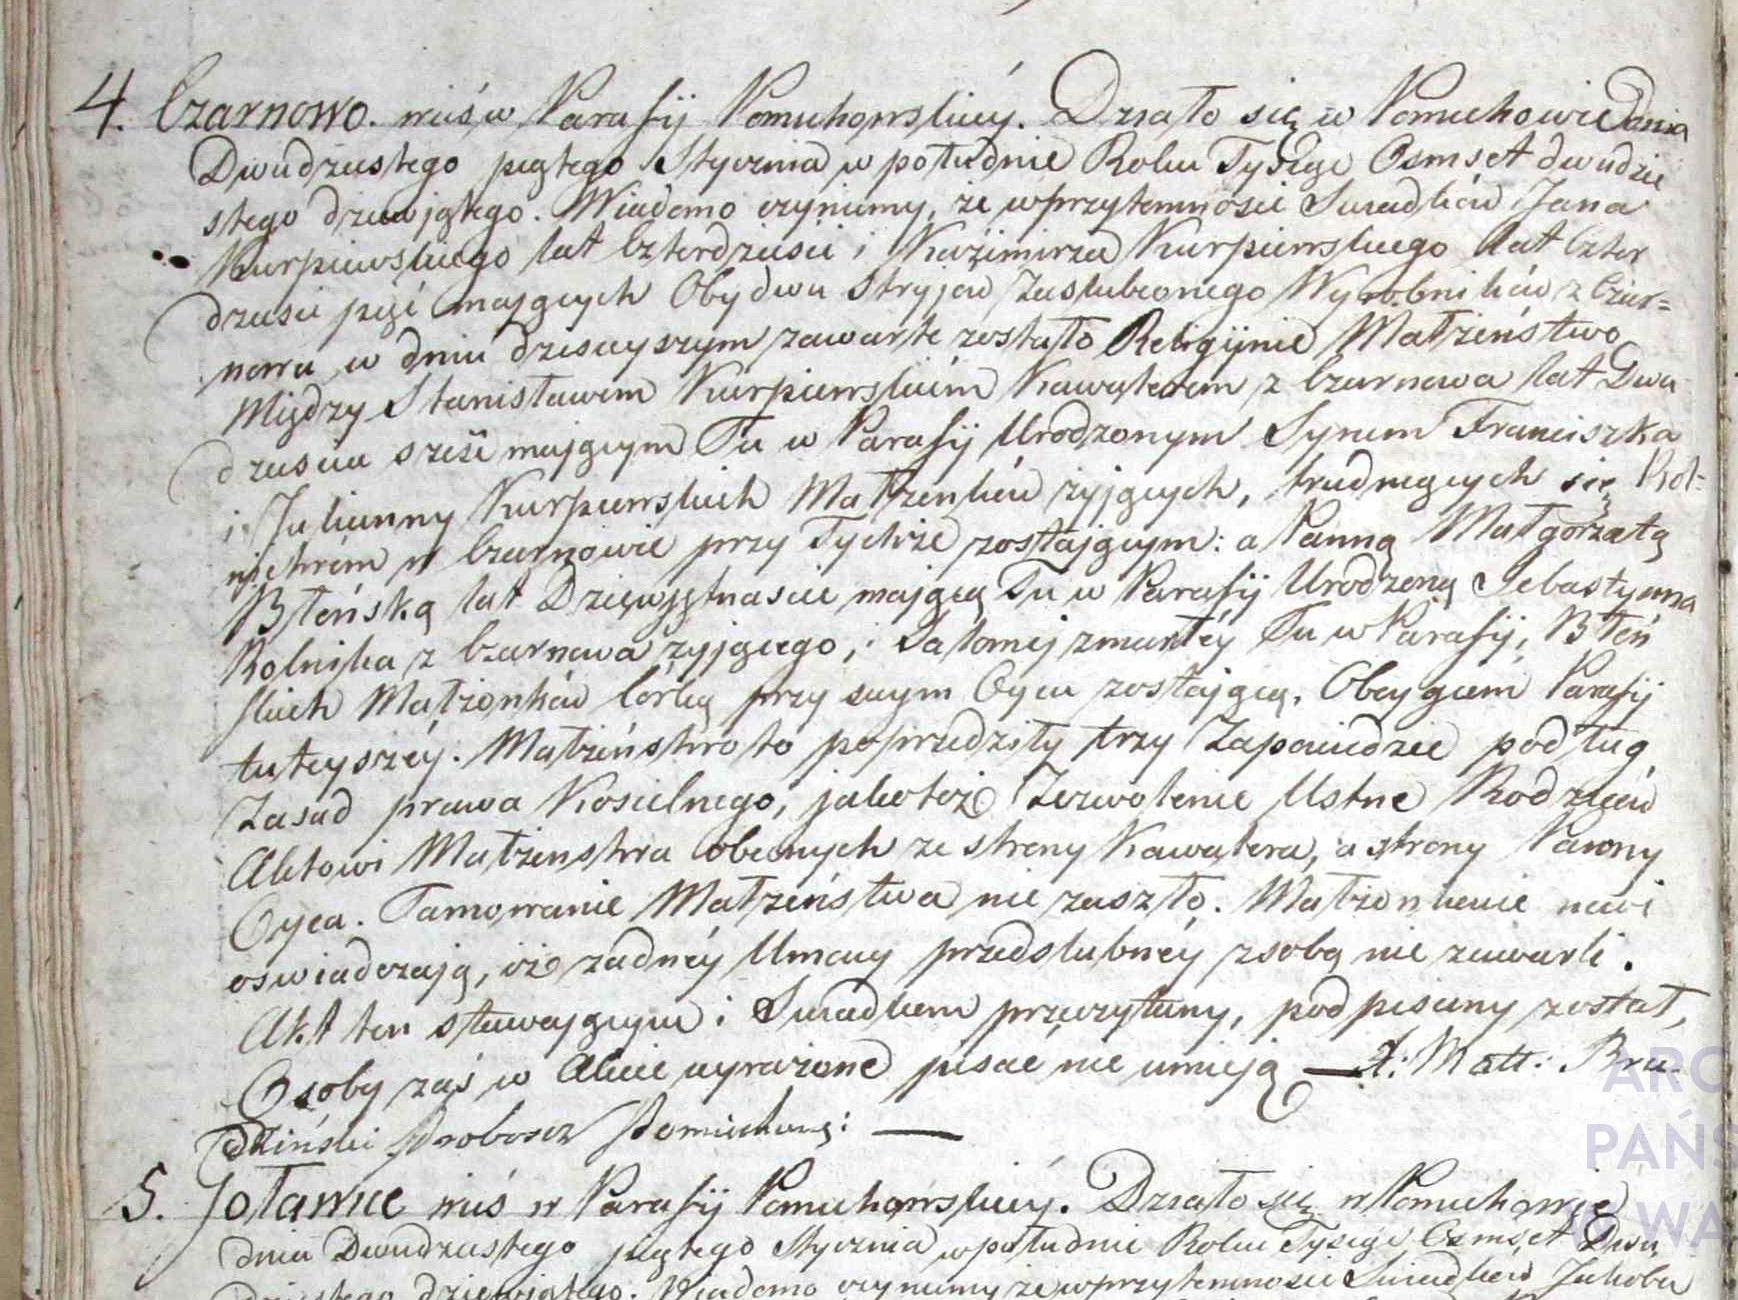 4. Czarnowo. wieś w Parafij Pomiechowskiéy. Działo się w Pomiechowie dnia
Dwudziestego piątego Stycznia w południe Roku Tysiąc Osmset dwudzie
stego dziewiątego. Wiadomo czyniemy, że wprzytomności Swiadków Jana
Kurpiewskiego lat Czterdzieści i Kazimirza Kurpiewskiego lat Czter
dzieści pięć mających Obydwu Stryjów Zaslubionego Wyrobników z Czar=
nowa w dniu dzisieyszym zawarte zostało Religijnie Małżeństwo
Między Stanisławem Kurpiewskiém Kawalerem z Czarnowa lat Dwa
dzieścia sześć mającym Tu w Parafij Urodzonym Synem Franciszka
i Julianny Kurpiewskich Małżonków żyjących, trudniących się Rol=
nictwém w Czarnowie przy Tychże zostającym: a Panną Małgorzatą
Błeńską lat Dziewiętnaście mającą Tu w Parafij Urodzoną Sebastyana
Rolnika z Czarnowa żyjącego, i Salomej zmarłéy Tu w Parafij, Błeń
skich Małżonków Córką przy swym Oycu zostającą, Oboygiem Parafij
tuteyszéy. Małżeństwo to poprzedziły trzy Zapowiedzie podług
Zasad prawa Kościelnego, jakoteż Zezwolenie Ustne Rodziców
Aktowi Małżeństwa obecnych ze strony Kawalera, a strony Panny
Oyca. Tamowanie Małżeństwa nie zaszło. Małżonkowie nowi
oswiadczają, iż żadnéy Umowy przedslubnéy z sobą nie zawarli.
Akt ten stawającym i Swiadkom przeczytany, podpisany został,
Osoby zaś w Akcie wyrażone pisać nie umieją — X: Matt: Bru-
dziński Proboszcz Pomiechows: —
5. Gołanice wieś w Parafij Pomiechowskiéy. Działo się w Pomiechowie
dnia Dwudziestego piątego Stycznia w południe Roku Tysiąc Osmset Dwu
dziestego dziewiątego. Wiadomo czyniemy że wprzytomności Swiadków Jakóba
ARC
PAŃS
WA